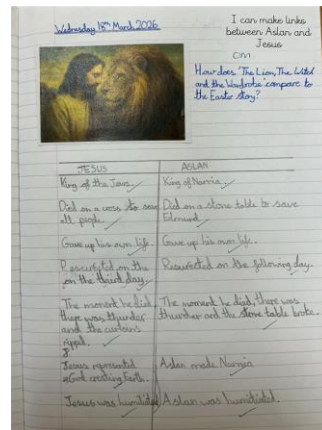 Wednesday 18th March 2026
I can make links
between Aslan and
Jesus
How does 'The Lion, The Witch
and the Wardrobe' compare to
the Easter story?
JESUS
ASLAN
King of the Jews.
King of Narnia.
Died on a cross to save
all people.
Died on a stone table to save
Edmund.
Gave up his own life.
Gave up his own life.
Resurected on the
on the third day.
Resurected on the following day.
The moment he died,
there was thunder
and the curtains
ripped.
The moment he died, there was
thunder and the stone table broke.
Jesus represented
God creating Earth.
Aslan made Narnia
Jesus was
Aslan was